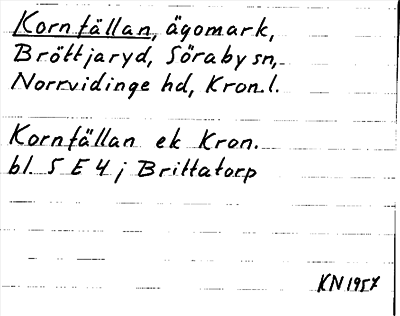 Kornfällan, ägomark,
Bröttjaryd, Söraby sn,
Norrvidinge hd, Kron.l.
Kornfällan ek Kron.
bl. 5 E 4 j Brittatorp
KN 1957